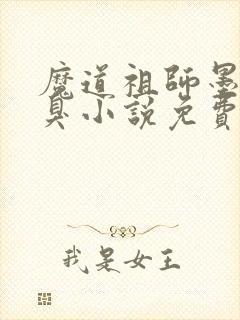 魔道祖師墨
臭小說免費
我是女王